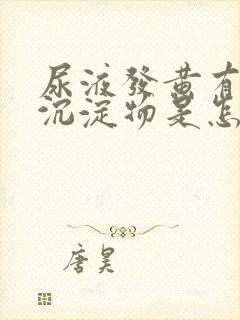 尿液發黃有
沉淀物是怎
唐昊